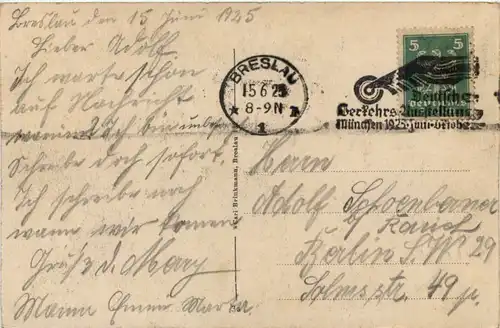 Breslau den 15 Juni 1925
Lieber Adolf
Ich warte schon
auf Nachricht
warum? Ich bin
Schreibe doch sofort.
Ich schreibe noch
wann wir komen
Grüße d. Mary
Mama Marta
Karl Brinkmann, Breslau
BRESLAU
15.6.25
8-9N
* 1 *
5 5
Deutsche
Verkehrs-Ausstellung
München 1925: Juni-Oktober
Herrn
Adolf
b/ Rauch
Berlin S.W 29
Solmsstr. 49 p.